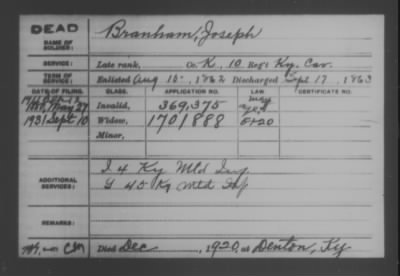 DEAD
NAME OF SOLDIER: Branham, Joseph
SERVICE: Late rank, Co. K, 10 Reg't Ky. Cav.
TERM OF SERVICE: Enlisted Aug 15, 1862 Discharged Sept 17, 1863
DATE OF FILING. CLASS. APPLICATION NO. LAW. CERTIFICATE NO.
Invalid, 369,375
1931 Sept 10 Widow, 1701888 5-1-20
Minor,
ADDITIONAL SERVICES: I 4 Ky Mtd Inf
G 45 Ky Mtd Inf
REMARKS:
Died Dec , 1920, at Denton, Ky